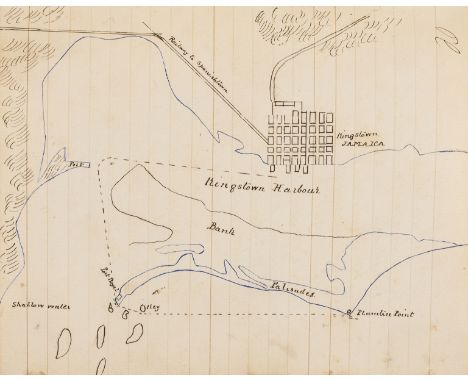 Railway to Spanishtown
Kingstown
JAMAICA
Fort
Kingstown Harbour
Bank
Port Royal
Palisades
Shallow water
Plumblin Point